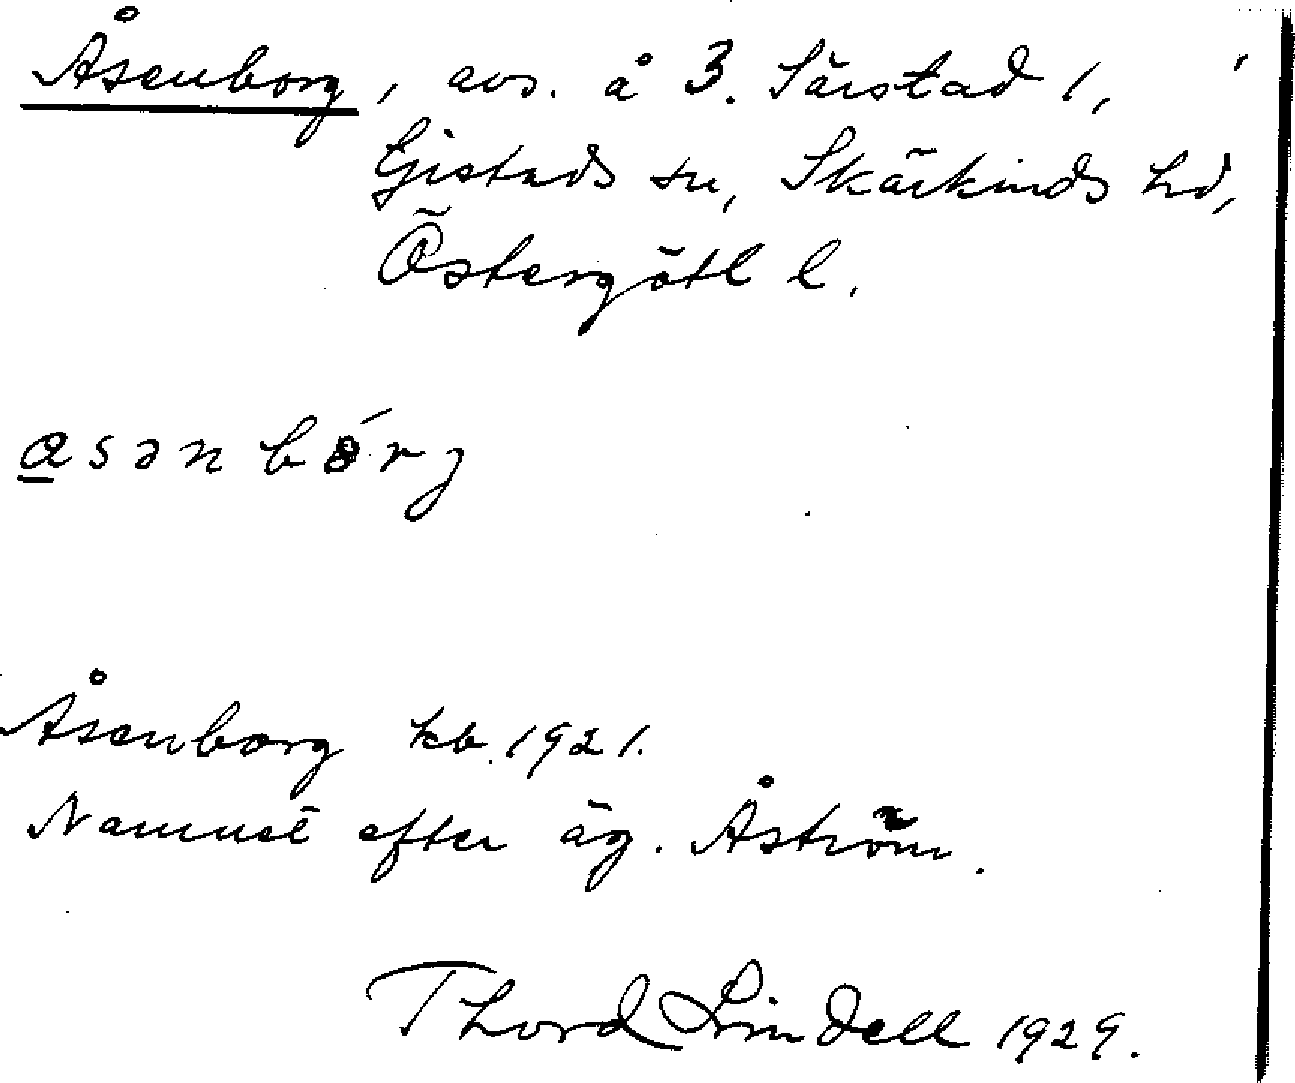 Åsenborg, avs. å 3. Särstad 1,
Gistads sn, Skärkinds hd,
Östergötl l.
asən bórg
Åsenborg kb. 1921.
Namnet efter äg. Åström.
Thord Lindell 1929.